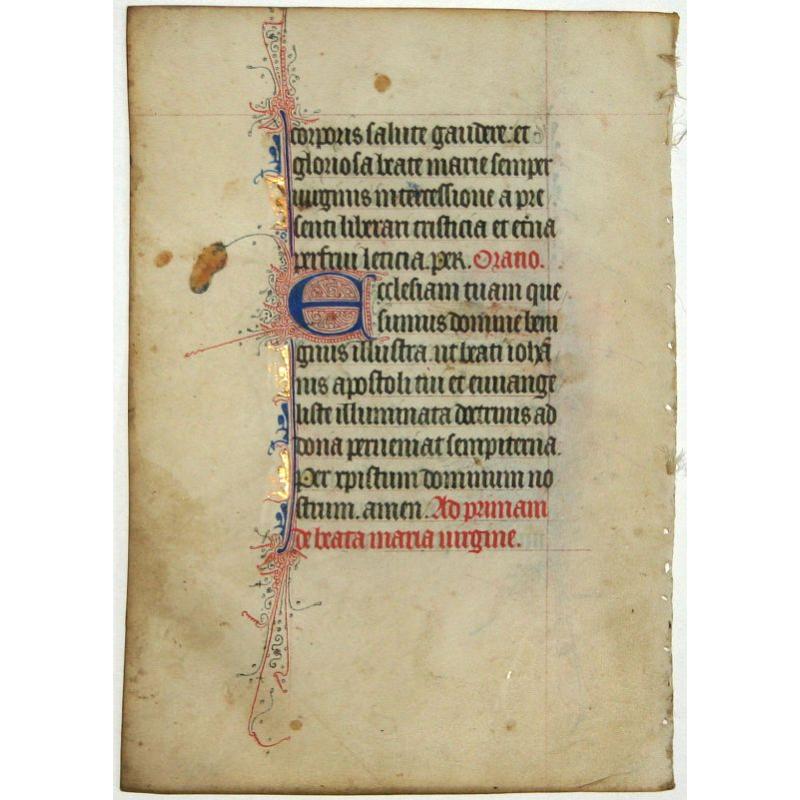 corporis salute gaudere. et
gloriosa beate marie semper
uirginis intercessione a pre
senti liberari tristicia et et̄na
perfrui leticia. per. Oratio.
Ecclesiam tuam que
sumus domine beni
gnus illustra. ut beati ioha̅
nis apostoli tui et euuange
liste illuminata doctrinis ad
dona perueniat sempiterna.
Per xpistum dominum no
strum. amen. Ad primam
de beata maria uirgine.